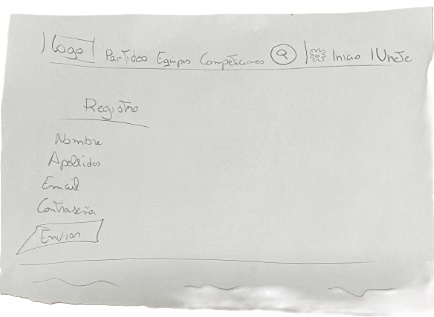 Logo Partidos Equipos Competiciones Inicio Unete
Registro
Nombre
Apellidos
Email
Contraseña
Enviar